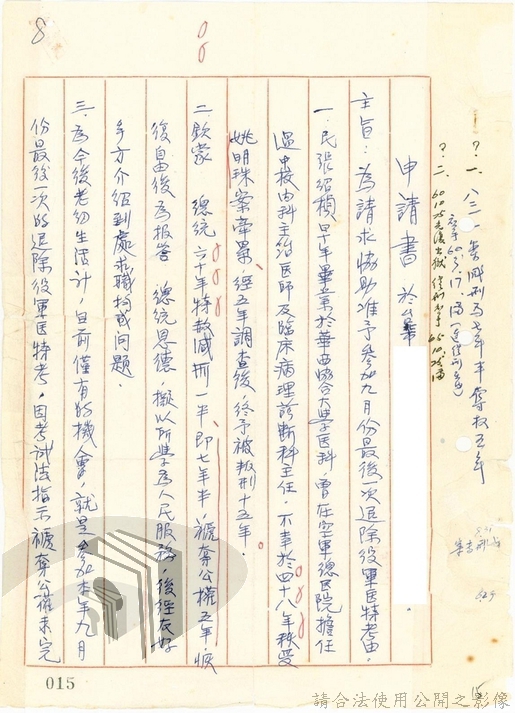 8
?一、八三一号减刑为七年半褫奪权五年
?二、
申請書
主旨：為請求協助准予參加九月份最後一次退除役軍医特考由，
一、民張紹楨早年畢業於華西協合大學医科，曾在空軍總医院擔任
過中校內科主治医师及臨床病理診断科主任。不幸於四十八年秋受
姚明珠案牽累、經五年調查後，終予被叛刑十五年。
二、欧蒙 總統六十年特赦減刑一半、即七年半，褫奪公權五年恢
復自由後為报答 總統恩德，擬以所學為人民服務，後經友好
多方介紹到處求職均成問题。
三、為今後老幼生活計，目前僅有的機會，就是參加本年九月
份最後一次的退除役軍医特考，因考試法指示褫奪公權未完
015
15
請合法使用公開之影像